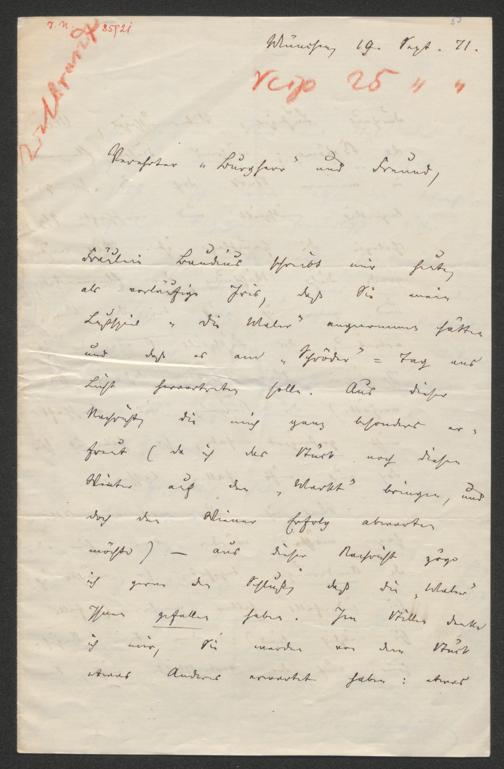 I.N. 85721
Wilbrandt
München, 19. Sept. 71.
resp 25 " "
Verehrter „Burgherr" und Freund,
Fräulein Baudius schreibt mir heute,
als vorläufige Iris, daß Sie mein
Lustspiel „Die Maler" angenommen hätten
und daß es am „Schröder"=Tag ans
Licht hervortreten solle. Aus dieser
Nachricht, die mich ganz besonders er-
freut (da ich das Stück noch diesen
Winter auf den „Markt" bringen, und
doch den Wiener Erfolg abwarten
möchte) — aus dieser Nachricht zöge
ich gerne den Schluß, daß die „Maler"
Ihnen gefallen haben. Im Stillen denke
ich mir, Sie werden von dem Stück
etwas Anderes erwartet haben: etwas